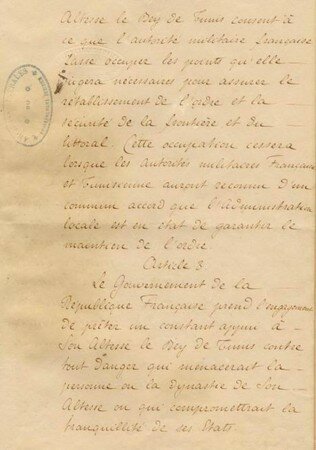 Altesse le Bey de Tunis consent à
ce que l'autorité militaire française
fasse occuper les points qu'elle
jugera nécessaires pour assurer le
rétablissement de l'ordre et la
sécurité de la frontière et du
littoral. Cette occupation cessera
lorsque les autorités militaires Françaises
et Tunisienne auront reconnu d'un
commun accord que l'Administration
locale est en état de garantir le
maintien de l'ordre.
Article 3
Le Gouvernement de la
République Française prend l'engagement
de prêter un constant appui à
Son Altesse le Bey de Tunis contre
tout danger qui menacerait la
personne ou la dynastie de Son
Altesse ou qui compromettrait la
tranquillité de ses Etats.